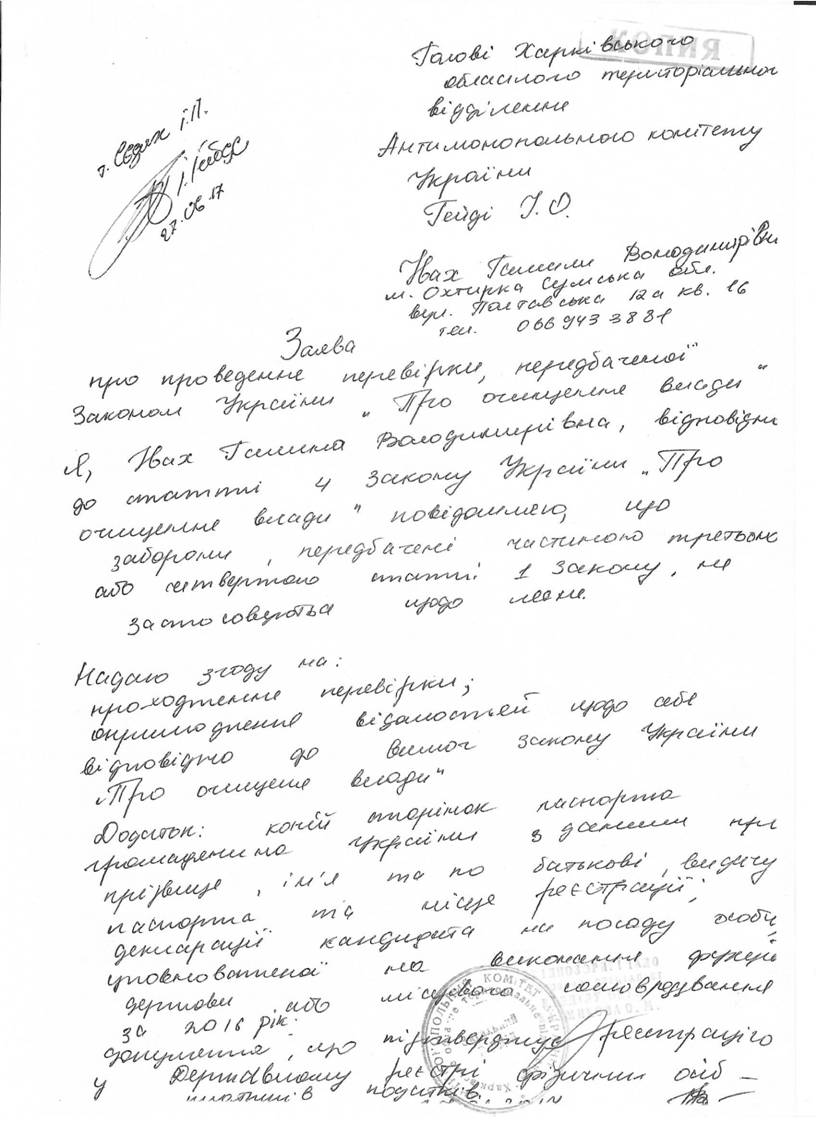 КОПІЯ
Голові Харківського
обласного територіального
відділення
Антимонопольного комітету
України
Гейді І.О.
т. Сєдих І.П.
І. Гейда
27.06.17
Нах Галини Володимирівни
м. Охтирка Сумська обл.
вул. Полтавська 12а кв. 16
тел. 066 943 3881
Заява
про проведення перевірки, передбаченої
Законом України „Про очищення влади"
Я, Нах Галина Володимирівна, відповідно
до статті 4 Закону України „Про
очищення влади" повідомляю, що
заборони, передбачені частиною третьою
або четвертою статті 1 Закону, не
застосовується щодо мене.
Надаю згоду на:
проходження перевірки;
оприлюднення відомостей щодо себе
відповідно до вимог закону України
„Про очищене влади"
Додаток: копій сторінок паспорта
громадянина України з даними про
прізвище, ім'я та по батькові, видачу
паспорта та місце реєстрації;
декларації кандидата на посаду особи,
уповноваженої на виконання функцій
держави або місцевого самоврядування
за 2016 рік.
документа, що підтверджує реєстрацію
у Державному реєстрі фізичних осіб –
платників податків.